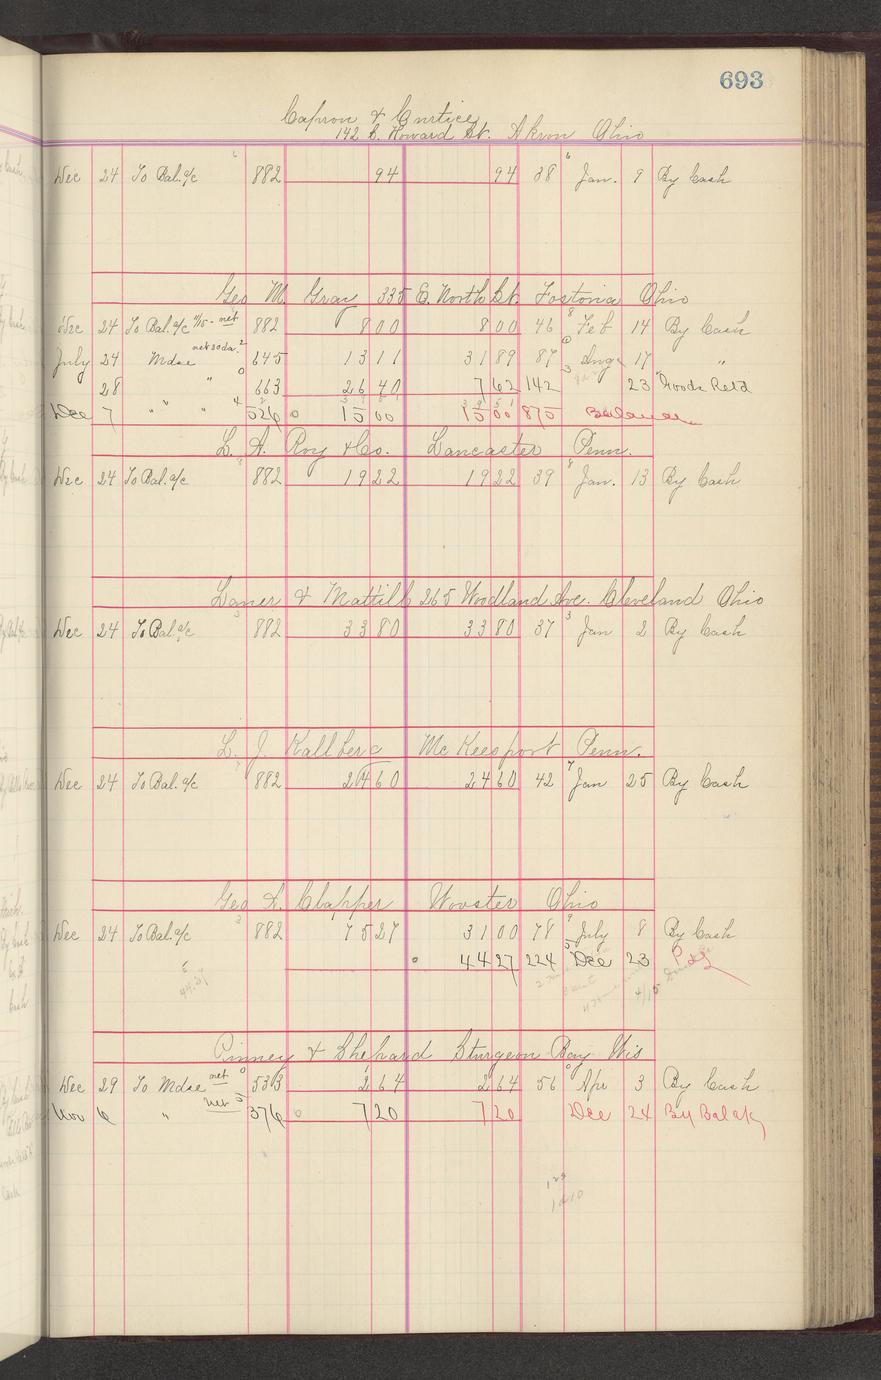 693
Capron & Curtice
142 S. Howard St. Akron Ohio
Dec 24 To Bal. a/c 882 94 94 38 Jan. 9 By Cash
Geo M. Gray 335 E. North St. Fostoria Ohio
Dec 24 To Bal. a/c net 882 8 00 8 00 46 Feb 14 By Cash
July 24 Mdse net 30 da. 645 13 11 31 89 87 Aug 17 "
28 " 663 26 40 7 62 142 23 Goods Retd
Dec 7 " " " 526 15 00 15 00 875 Balance
L. A. Roy & Co. Lancaster Penn.
Dec 24 To Bal. a/c 882 19 22 19 22 39 Jan. 13 By Cash
265 Woodland Ave. Cleveland Ohio
Dec 24 To Bal. a/c 882 33 80 33 80 37 Jan 2 By Cash
L. J. McKeesport Penn.
Dec 24 To Bal. a/c 882 24 60 24 60 42 Jan 25 By Cash
Geo A. Clapper Wooster Ohio
Dec 24 To Bal. a/c 882 75 27 31 00 78 July 8 By Cash
44 27 224 Dec 23 P&L
Pinney & Shepard Sturgeon Bay Wis
Dec 29 To Mdse net 533 2 64 2 64 56 Apr 3 By Cash
Nov 6 " net 376 7 20 7 20 Dec 24 By Bal a/c